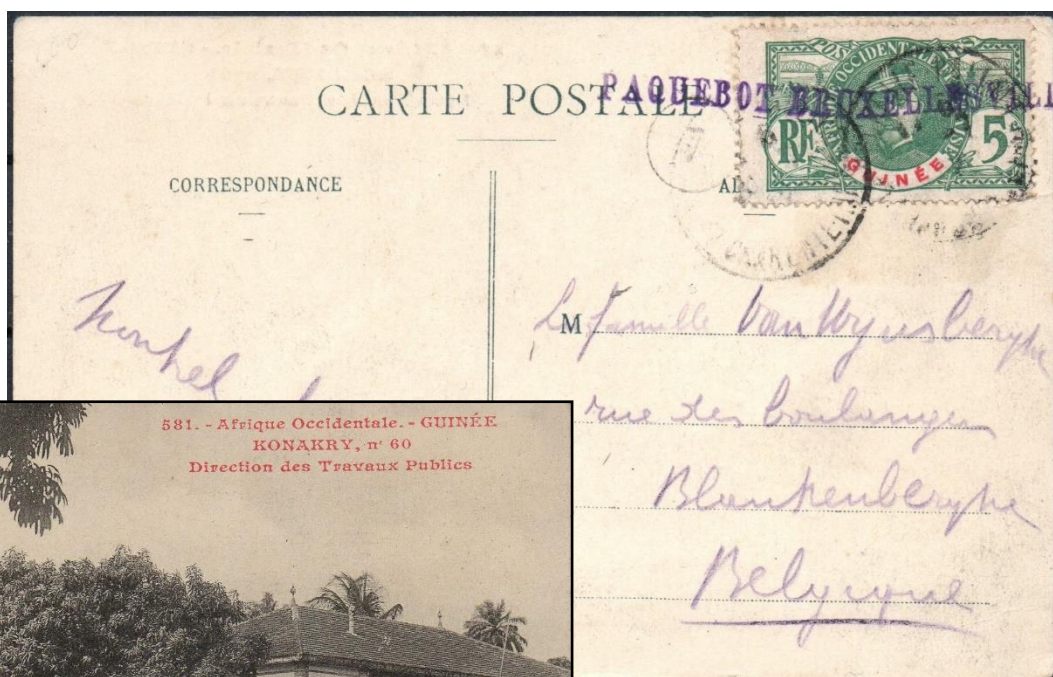 CARTE POSTALE
PAQUEBOT BRUXELLESVILLE
POSTE
AFRIQUE OCCIDENTALE FSE
RF
5
GUINÉE
CORRESPONDANCE
Nonkel
M La famille Van Wynsberghe
rue des boulanger
Blankenberghe
Belgique
581. - Afrique Occidentale. - GUINÉE
KONAKRY, nº 60
Direction des Travaux Publics